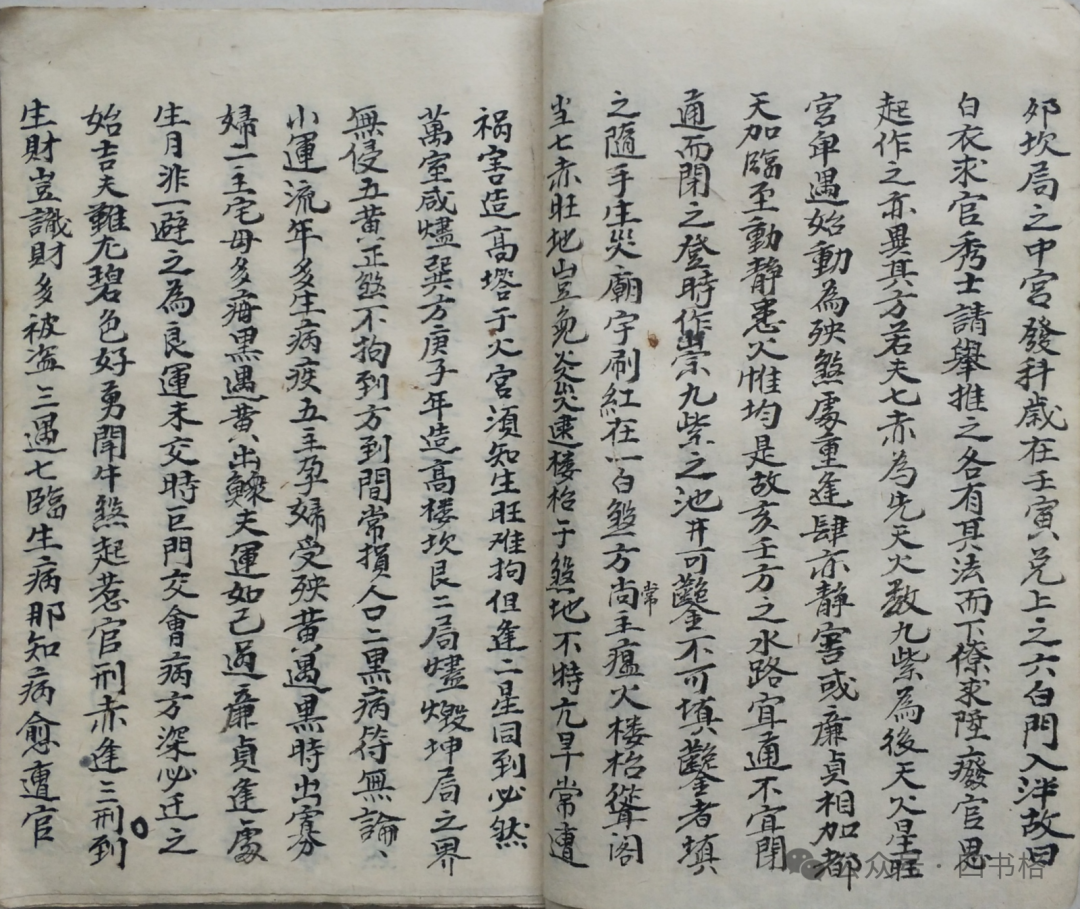 郊坎局之中宮發科歲在壬寅兌上之六白門入泮故曰
白衣求官秀士請舉推之各有其法而下僚求陞癈官思
起作之亦異其方若夫七赤為先天火数九紫為後天火星旺
宮单遇始動為殃煞處重逢肆亦静害或廉貞相加都
天加臨至動静患火惟均是故亥壬方之水路宜通不宜閉
通而閉之登時作祟九紫之池井可鑿不可填鑿者填
之隨手生災廟宇刷紅在一白煞方尚常主瘟火楼枱聳阁
当七赤旺地豈免炎災建楼枱于煞地不特亢旱常遭
祸害造高塔于火宮須知生旺难拘但逢二星同到必然
萬室咸燼巽方庚子年造高楼坎艮二局燼燬坤局之界
無侵五黄正煞不拘到方到間常損人口二黒病符無論、
小運流年多生病疾五主孕婦受殃黄遇黒時出寡
婦二主宅母多痗黒遇黄出鰥夫運如已過廉貞逢處
生月非一避之為良運未交時巨門交會病方深必迁之
始吉夫難尤碧色好勇鬭牛煞起惹官刑赤逢三刑到
生財豈識財多被盗三遇七臨生病那知病愈遭官
众号·四书格